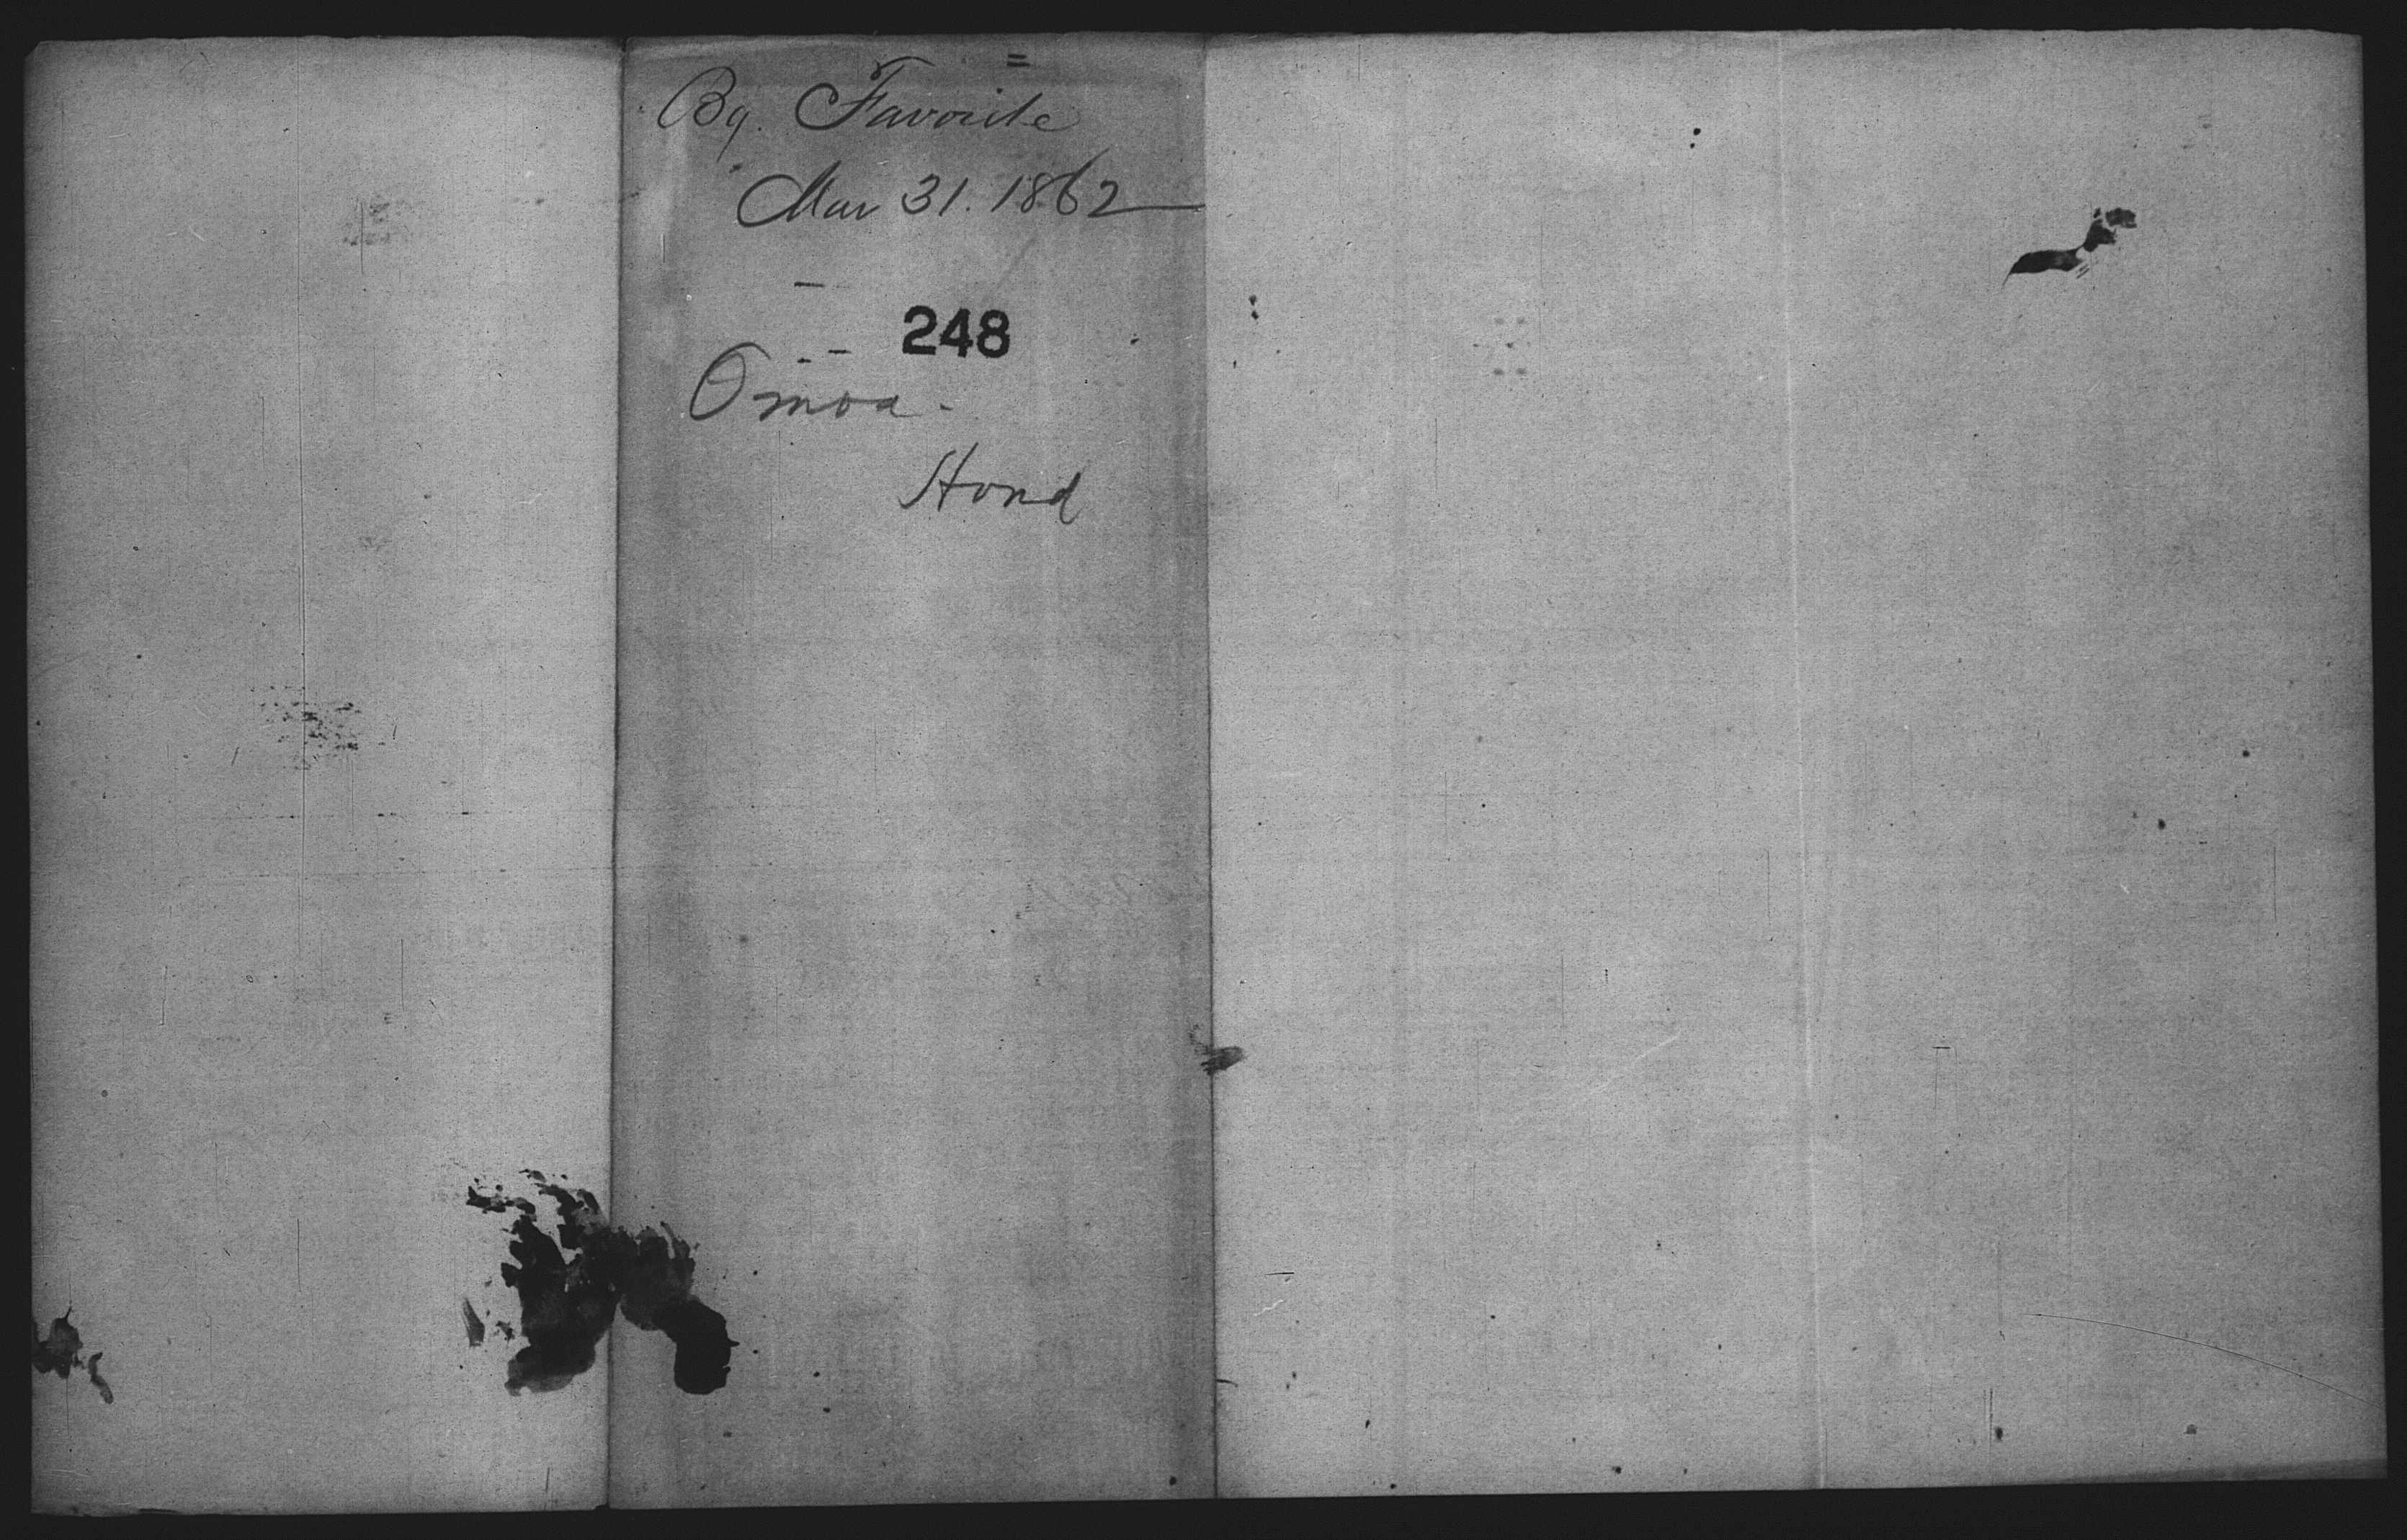 Bg. Favorite
Mar 31. 1862
248
Omoa.
Hond